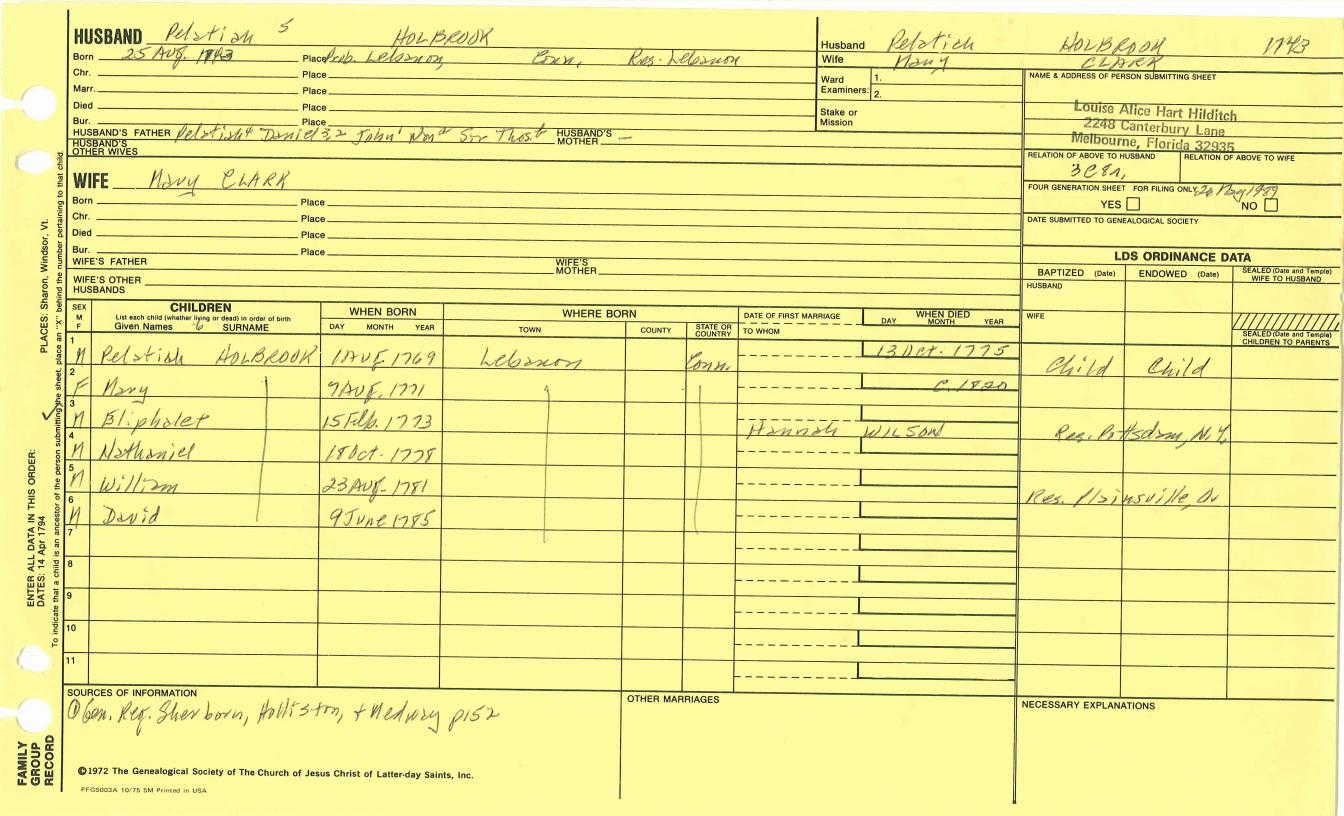 HUSBAND Pelatiah 5 HOLBROOK
Born 25 Aug. 1743 Place Prob. Lebanon, Conn, Res. Lebanon
Chr. Place
Marr. Place
Died Place
Bur. Place
HUSBAND'S FATHER Pelatiah4 Daniel3,2 John1 HUSBAND'S MOTHER —
HUSBAND'S OTHER WIVES
Husband Pelatiah HOLBROOK 1743
Wife Mary CLARK
Ward Examiners: 1.
2.
Stake or Mission
NAME & ADDRESS OF PERSON SUBMITTING SHEET
Louise Alice Hart Hilditch
2248 Canterbury Lane
Melbourne, Florida 32935
RELATION OF ABOVE TO HUSBAND RELATION OF ABOVE TO WIFE
3C8r,
FOUR GENERATION SHEET FOR FILING ONLY 20 May 1989
YES NO
DATE SUBMITTED TO GENEALOGICAL SOCIETY
WIFE Mary CLARK
Born Place
Chr. Place
Died Place
Bur. Place
WIFE'S FATHER WIFE'S MOTHER
WIFE'S OTHER HUSBANDS
LDS ORDINANCE DATA
BAPTIZED (Date) ENDOWED (Date) SEALED (Date and Temple) WIFE TO HUSBAND
HUSBAND
WIFE
SEALED (Date and Temple) CHILDREN TO PARENTS
SEX M F CHILDREN WHEN BORN WHERE BORN DATE OF FIRST MARRIAGE WHEN DIED
List each child (whether living or dead) in order of birth
Given Names 6 SURNAME DAY MONTH YEAR TOWN COUNTY STATE OR COUNTRY TO WHOM DAY MONTH YEAR
1 M Pelatiah HOLBROOK 1 Aug. 1769 Lebanon Conn. 13 Oct. 1775 Child Child
2 F Mary 7 Aug. 1771 C. 1820
3 M Eliphalet 15 Feb. 1773 Hannah WILSON Res. Pottsdam, N.Y.
4 M Nathaniel 18 Oct. 1778
5 M William 23 Aug. 1781 Res. Plainsville,
6 M David 9 June 1785
7
8
9
10
11
SOURCES OF INFORMATION
① Gen. Reg. Sherborn, Holliston, + Medway p152
OTHER MARRIAGES
NECESSARY EXPLANATIONS
©1972 The Genealogical Society of The Church of Jesus Christ of Latter-day Saints, Inc.
PFGS003A 10/75 5M Printed in USA
FAMILY GROUP RECORD
ENTER ALL DATA IN THIS ORDER:
DATES: 14 Apr 1794 PLACES: Sharon, Windsor, Vt.
To indicate that a child is an ancestor of the person submitting the sheet, place an "X" behind the number pertaining to that child.